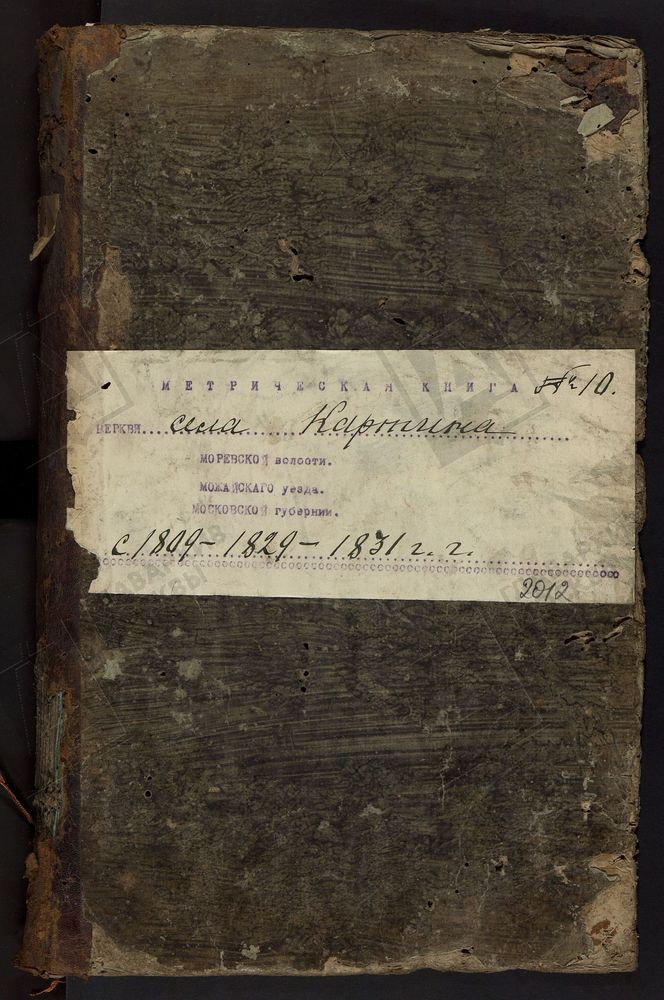 МЕТРИЧЕСКАЯ КНИГА № 10.
ЦЕРКВИ....села Карачина
МОРЕВСКОЙ волости.
МОЖАЙСКАГО уезда.
МОСКОВСКОЙ губернии.
с 1809 - 1829 - 1831 г. г.
2012